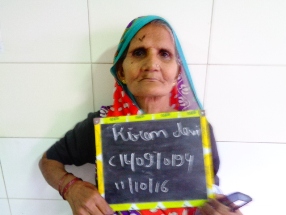 Kiran Devi
C1409/0194
11/10/16